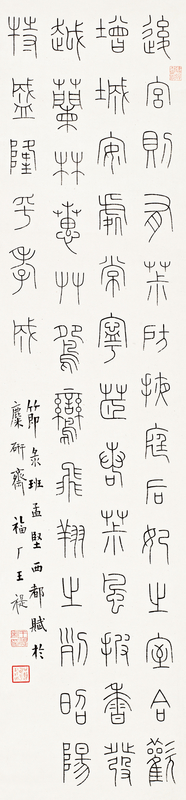 後宮則有茮房掖庭后妃之室合歡
增城安處常寧茝若茮風披香發
越蘭林蕙艸鴛鸞飛翔之列昭陽
特盛隆乎孝成
節彔班孟堅西都賦於
麋研齋福厂王禔